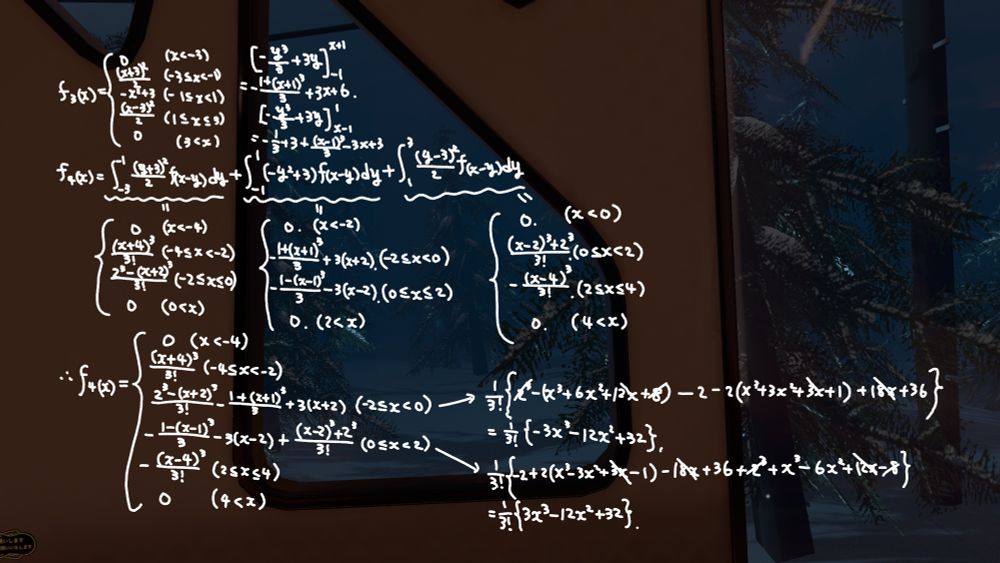 f₃(x)= { 0 (x<-3)
(x+3)²/2 (-3≤x<-1)
-x²+3 (-1≤x<1)
(x-3)²/2 (1≤x≤3)
0 (3<x)
[-y³/3+3y]₋₁^{x+1}
=-(1+(x+1)³)/3+3x+6.
[-y³/3+3y]_{x-1}^{1}
=-1/3+3+(x-1)³/3-3x+3
f₄(x)=∫₋₃^{-1} (y+3)²/2 f(x-y)dy+∫₋₁^{1}(-y²+3)f(x-y)dy+∫₁^{3} (y-3)²/2 f(x-y)dy
= { 0 (x<-4)
(x+4)³/3! (-4≤x<-2)
(2³-(x+2)³)/3! (-2≤x≤0)
0 (0<x)
= { 0. (x<-2)
-(1+(x+1)³)/3+3(x+2). (-2≤x<0)
-(1-(x-1)³)/3-3(x-2). (0≤x≤2)
0. (2<x)
= { 0. (x<0)
((x-2)³+2³)/3!. (0≤x<2)
-(x-4)³/3!. (2≤x≤4)
0. (4<x)
∴f₄(x)= { 0 (x<-4)
(x+4)³/3! (-4≤x<-2)
(2³-(x+2)³)/3!-(1+(x+1)³)/3+3(x+2) (-2≤x<0)
-(1-(x-1)³)/3-3(x-2)+((x-2)³+2³)/3! (0≤x<2)
-(x-4)³/3! (2≤x≤4)
0 (4<x)
→ 1/3!{2³-(x³+6x²+12x+8)-2-2(x³+3x²+3x+1)+18x+36}
=1/3!{-3x³-12x²+32},
→ 1/3!{-2+2(x³-3x²+3x-1)-18x+36+2³+x³-6x²+12x-8}
=1/3!{3x³-12x²+32}.